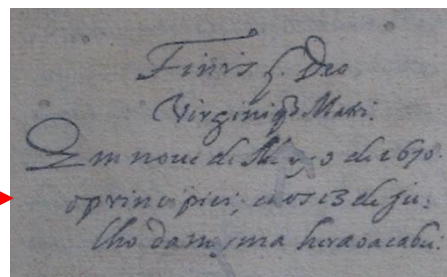 Finis S. Deo
Virginiq̃ Matri.
Em nove de Março de 1670.
o principiei, e aos 13 de ju-
lho da mesma hera o acabei.